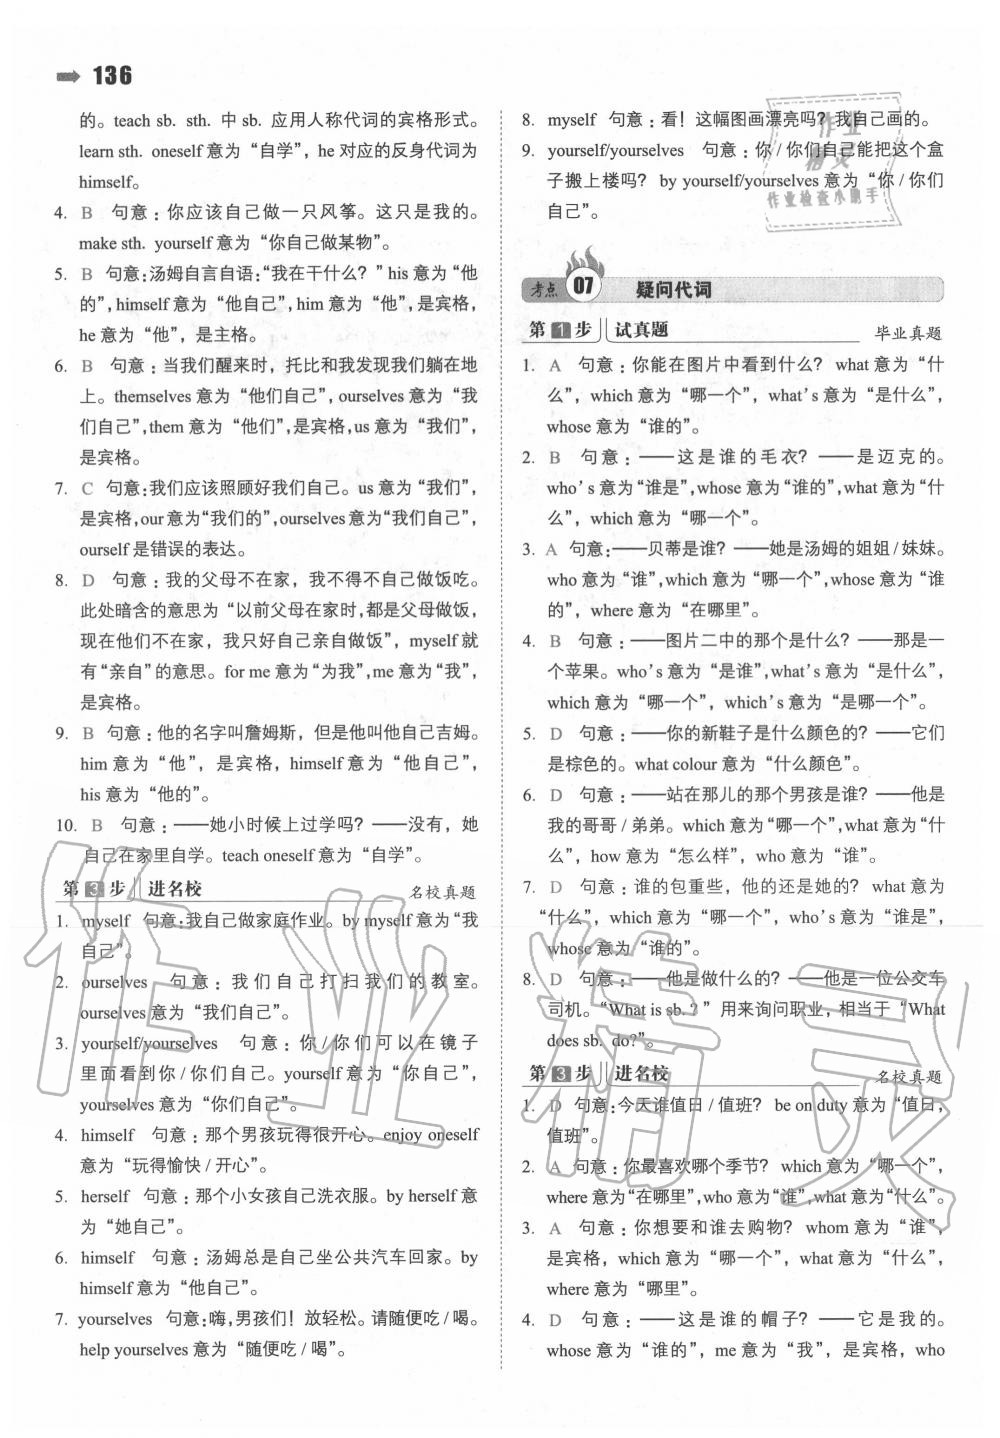 136
的。teach sb. sth. 中 sb. 应用人称代词的宾格形式。
learn sth. oneself 意为“自学”，he 对应的反身代词为
himself。
4. B 句意：你应该自己做一只风筝。这只是我的。
make sth. yourself 意为“你自己做某物”。
5. B 句意：汤姆自言自语：“我在干什么？”his 意为“他
的”，himself 意为“他自己”，him 意为“他”，是宾格，
he 意为“他”，是主格。
6. B 句意：当我们醒来时，托比和我发现我们躺在地
上。themselves 意为“他们自己”，ourselves 意为“我
们自己”，them 意为“他们”，是宾格，us 意为“我们”，
是宾格。
7. C 句意：我们应该照顾好我们自己。us 意为“我们”，
是宾格，our 意为“我们的”，ourselves 意为“我们自己”，
ourself 是错误的表达。
8. D 句意：我的父母不在家，我不得不自己做饭吃。
此处暗含的意思为“以前父母在家时，都是父母做饭，
现在他们不在家，我只好自己亲自做饭”，myself 就
有“亲自”的意思。for me 意为“为我”，me 意为“我”，
是宾格。
9. B 句意：他的名字叫詹姆斯，但是他叫他自己吉姆。
him 意为“他”，是宾格，himself 意为“他自己”，
his 意为“他的”。
10. B 句意：——她小时候上过学吗？——没有，她
自己在家里自学。teach oneself 意为“自学”。
第3步 进名校 名校真题
1. myself 句意：我自己做家庭作业。by myself 意为“我
自己”。
2. ourselves 句意：我们自己打扫我们的教室。
ourselves 意为“我们自己”。
3. yourself/yourselves 句意：你/你们可以在镜子
里面看到你/你们自己。yourself 意为“你自己”，
yourselves 意为“你们自己”。
4. himself 句意：那个男孩玩得很开心。enjoy oneself
意为“玩得愉快/开心”。
5. herself 句意：那个小女孩自己洗衣服。by herself 意
为“她自己”。
6. himself 句意：汤姆总是自己坐公共汽车回家。by
himself 意为“他自己”。
7. yourselves 句意：嗨，男孩们！放轻松。请随便吃/喝。
help yourselves 意为“随便吃/喝”。
8. myself 句意：看！这幅图画漂亮吗？我自己画的。
9. yourself/yourselves 句意：你/你们自己能把这个盒
子搬上楼吗？by yourself/yourselves 意为“你/你们
自己”。
作业
精灵
作业检查小助手
考点 07 疑问代词
第1步 试真题 毕业真题
1. A 句意：你能在图片中看到什么？what 意为“什
么”，which 意为“哪一个”，what's 意为“是什么”，
whose 意为“谁的”。
2. B 句意：——这是谁的毛衣？——是迈克的。
who's 意为“谁是”，whose 意为“谁的”，what 意为“什
么”，which 意为“哪一个”。
3. A 句意：——贝蒂是谁？——她是汤姆的姐姐/妹妹。
who 意为“谁”，which 意为“哪一个”，whose 意为“谁
的”，where 意为“在哪里”。
4. B 句意：——图片二中的那个是什么？——那是一
个苹果。who's 意为“是谁”，what's 意为“是什么”，
which 意为“哪一个”，which's 意为“是哪一个”。
5. D 句意：——你的新鞋子是什么颜色的？——它们
是棕色的。what colour 意为“什么颜色”。
6. D 句意：——站在那儿的那个男孩是谁？——他是
我的哥哥/弟弟。which 意为“哪一个”，what 意为“什
么”，how 意为“怎么样”，who 意为“谁”。
7. D 句意：谁的包重些，他的还是她的？what 意为
“什么”，which 意为“哪一个”，who's 意为“谁是”，
whose 意为“谁的”。
8. D 句意：——他是做什么的？——他是一位公交车
司机。“What is sb.？”用来询问职业，相当于“What
does sb. do?”。
第3步 进名校 名校真题
1. D 句意：今天谁值日/值班？be on duty 意为“值日，
值班”。
2. A 句意：你最喜欢哪个季节？which 意为“哪一个”，
where 意为“在哪里”，who 意为“谁”，what 意为“什么”。
3. A 句意：你想要和谁去购物？whom 意为“谁”，
是宾格，which 意为“哪一个”，what 意为“什么”，
where 意为“哪里”。
4. D 句意：——这是谁的帽子？——它是我的。
whose 意为“谁的”，me 意为“我”，是宾格，who
作业精灵